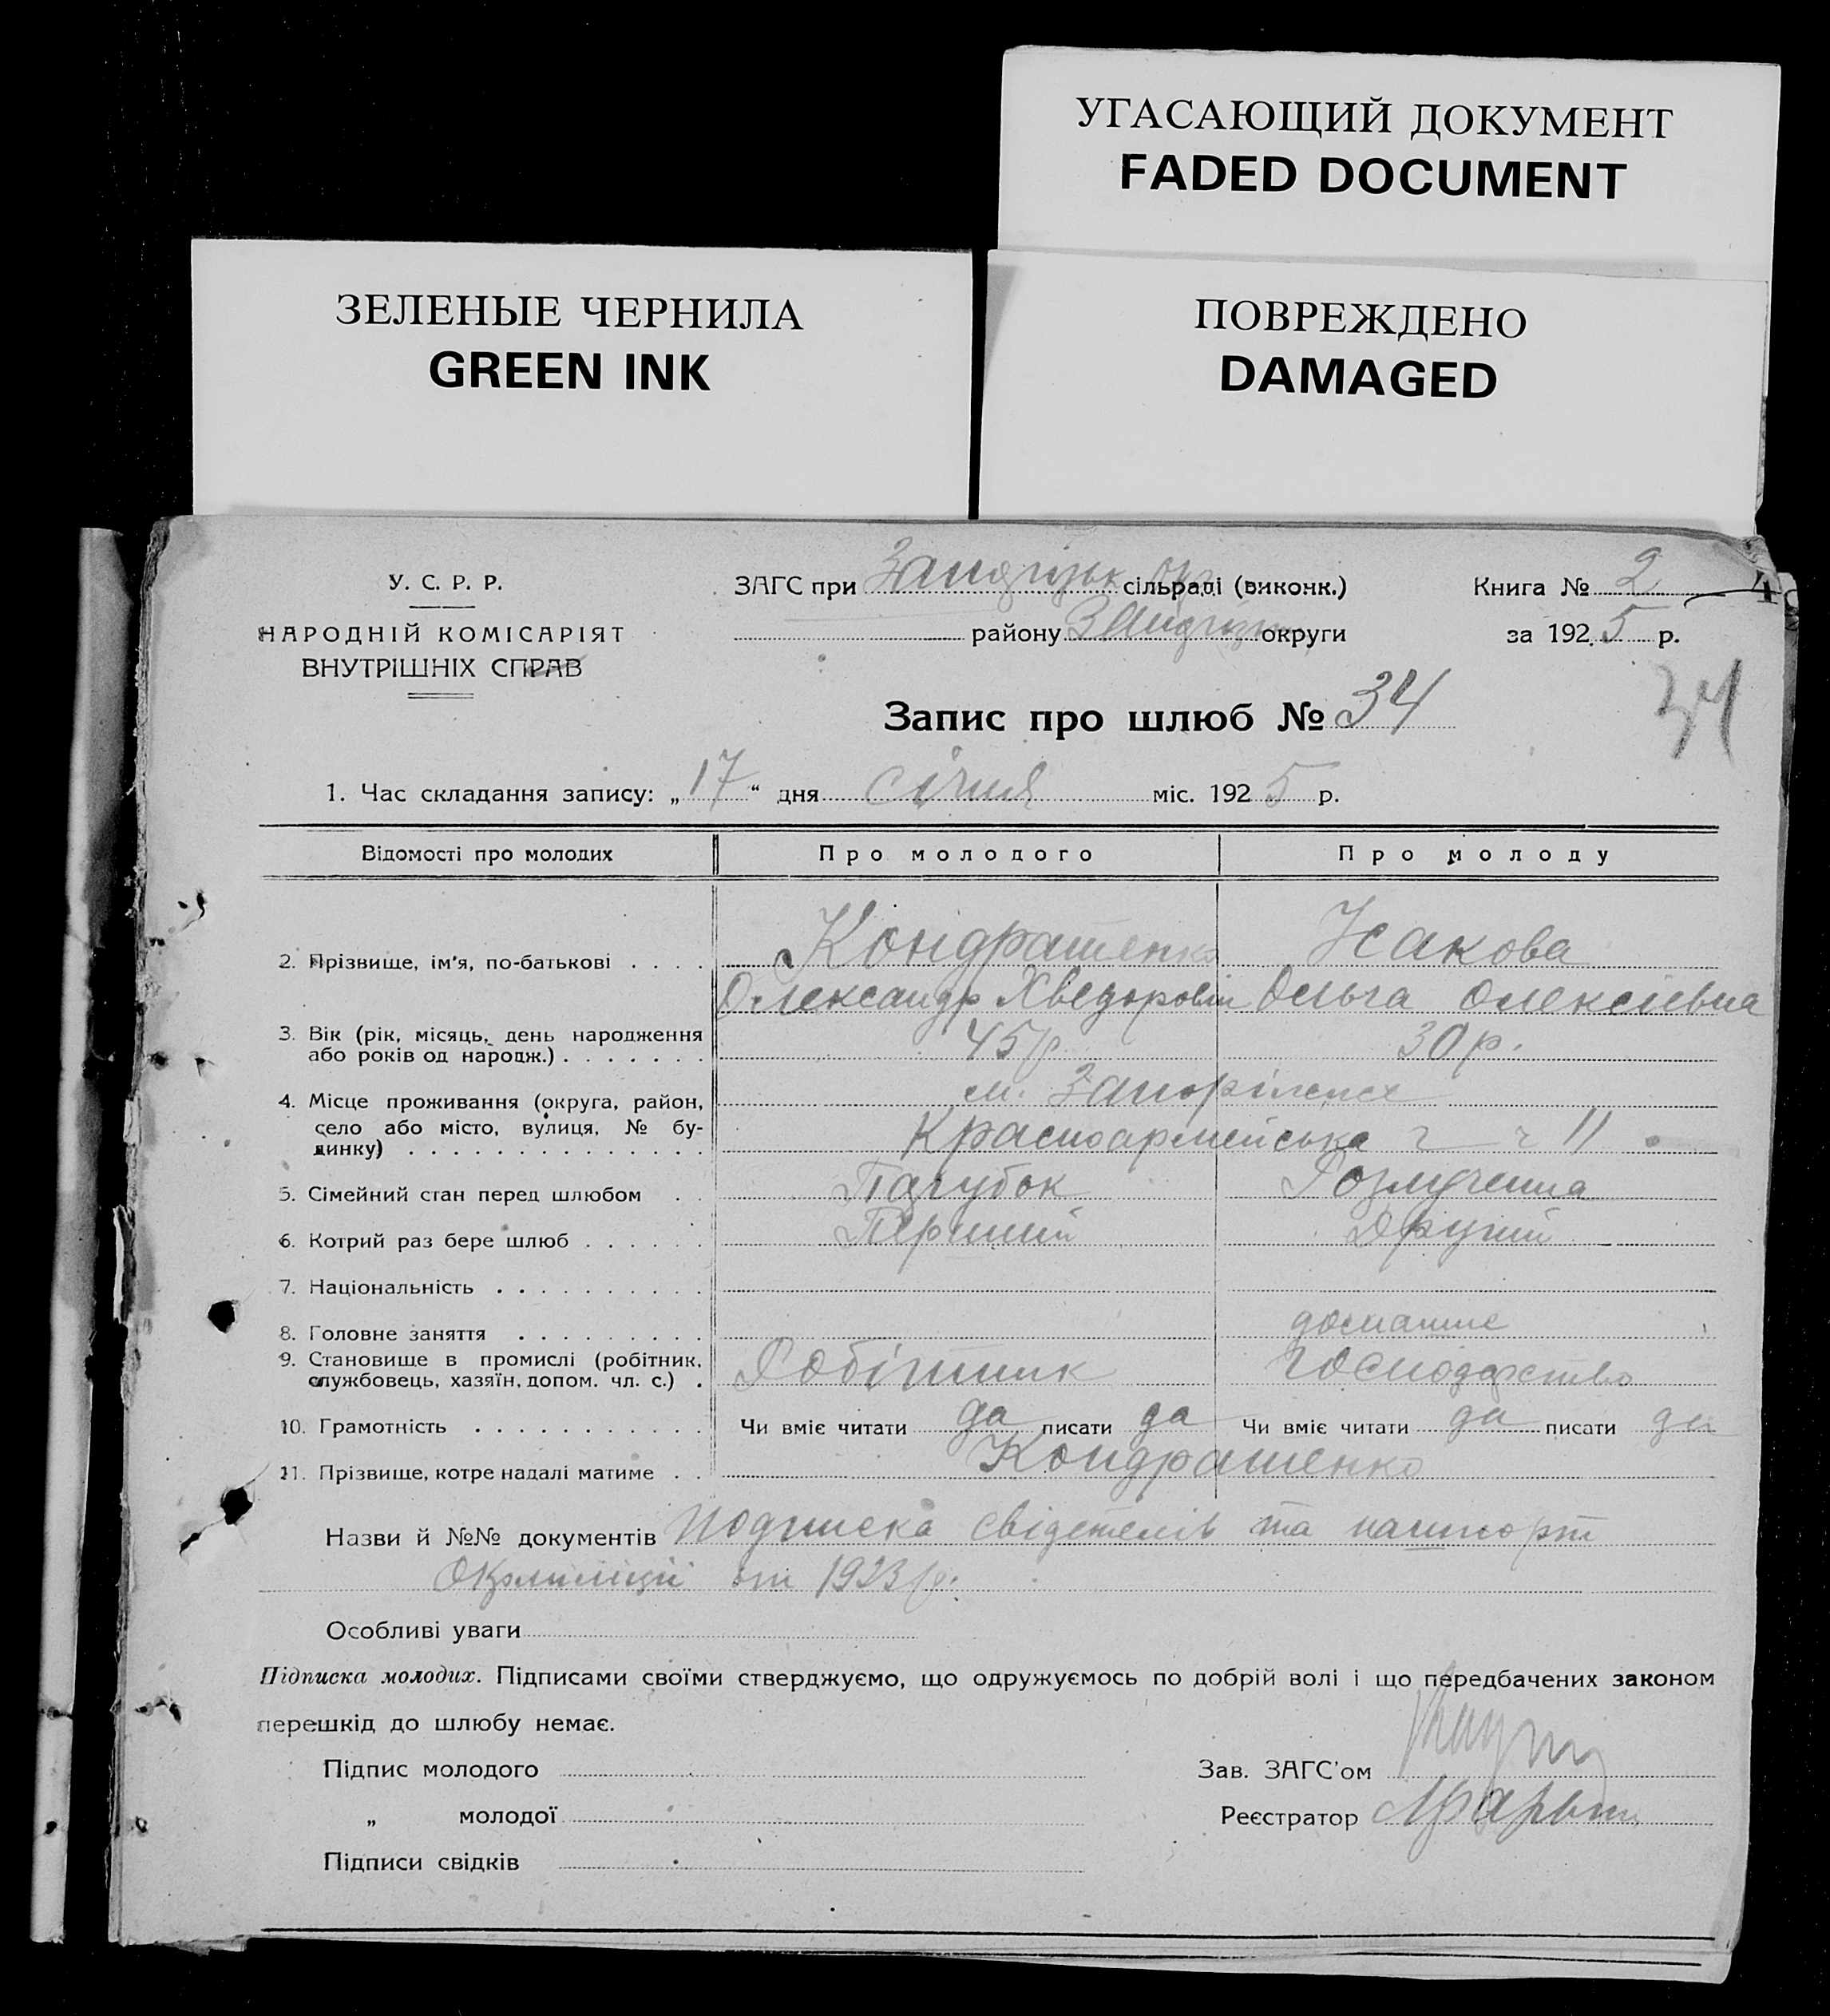 УГАСАЮЩИЙ ДОКУМЕНТ
FADED DOCUMENT
ЗЕЛЕНЫЕ ЧЕРНИЛА
GREEN INK
ПОВРЕЖДЕНО
DAMAGED
У. С. Р. Р.
НАРОДНІЙ КОМІСАРІЯТ
ВНУТРІШНІХ СПРАВ
ЗАГС при сільраді (виконк.)
району округи
Книга № 2
за 1925 р.
Запис про шлюб № 34
34
1. Час складання запису: „17“ дня січня міс. 1925 р.
Відомості про молодих Про молодого Про молоду
2. Прізвище, ім'я, по-батькові . . . . Кондратенко
Олександр Хведорович Ольга Олексіївна
3. Вік (рік, місяць, день народження
або років од народж.) . . . . . . . 45 р. 30 р.
4. Місце проживання (округа, район,
село або місто, вулиця, № бу-
динку) . . . . . . . . . . . . . .
м. Запоріжжє
Красноармейська ч 11
5. Сімейний стан перед шлюбом . . Парубок Розлучена
6. Котрий раз бере шлюб . . . . . . Перший Другий
7. Національність . . . . . . . . . .
8. Головне заняття . . . . . . . . . домашнє
9. Становище в промислі (робітник,
службовець, хазяїн, допом. чл. с.) . Робітник господарство
10. Грамотність . . . . . . . . . . . Чи вміє читати да писати да Чи вміє читати да писати да
11. Прізвище, котре надалі матиме . . Кондратенко
Назви й №№ документів подписка свідетелів та пашпорт
от 1923 р.
Особливі уваги
Підписка молодих. Підписами своїми стверджуємо, що одружуємось по добрій волі і що передбачених законом
перешкід до шлюбу немає.
Підпис молодого
Зав. ЗАГС'ом
„ молодої
Реєстратор
Підписи свідків